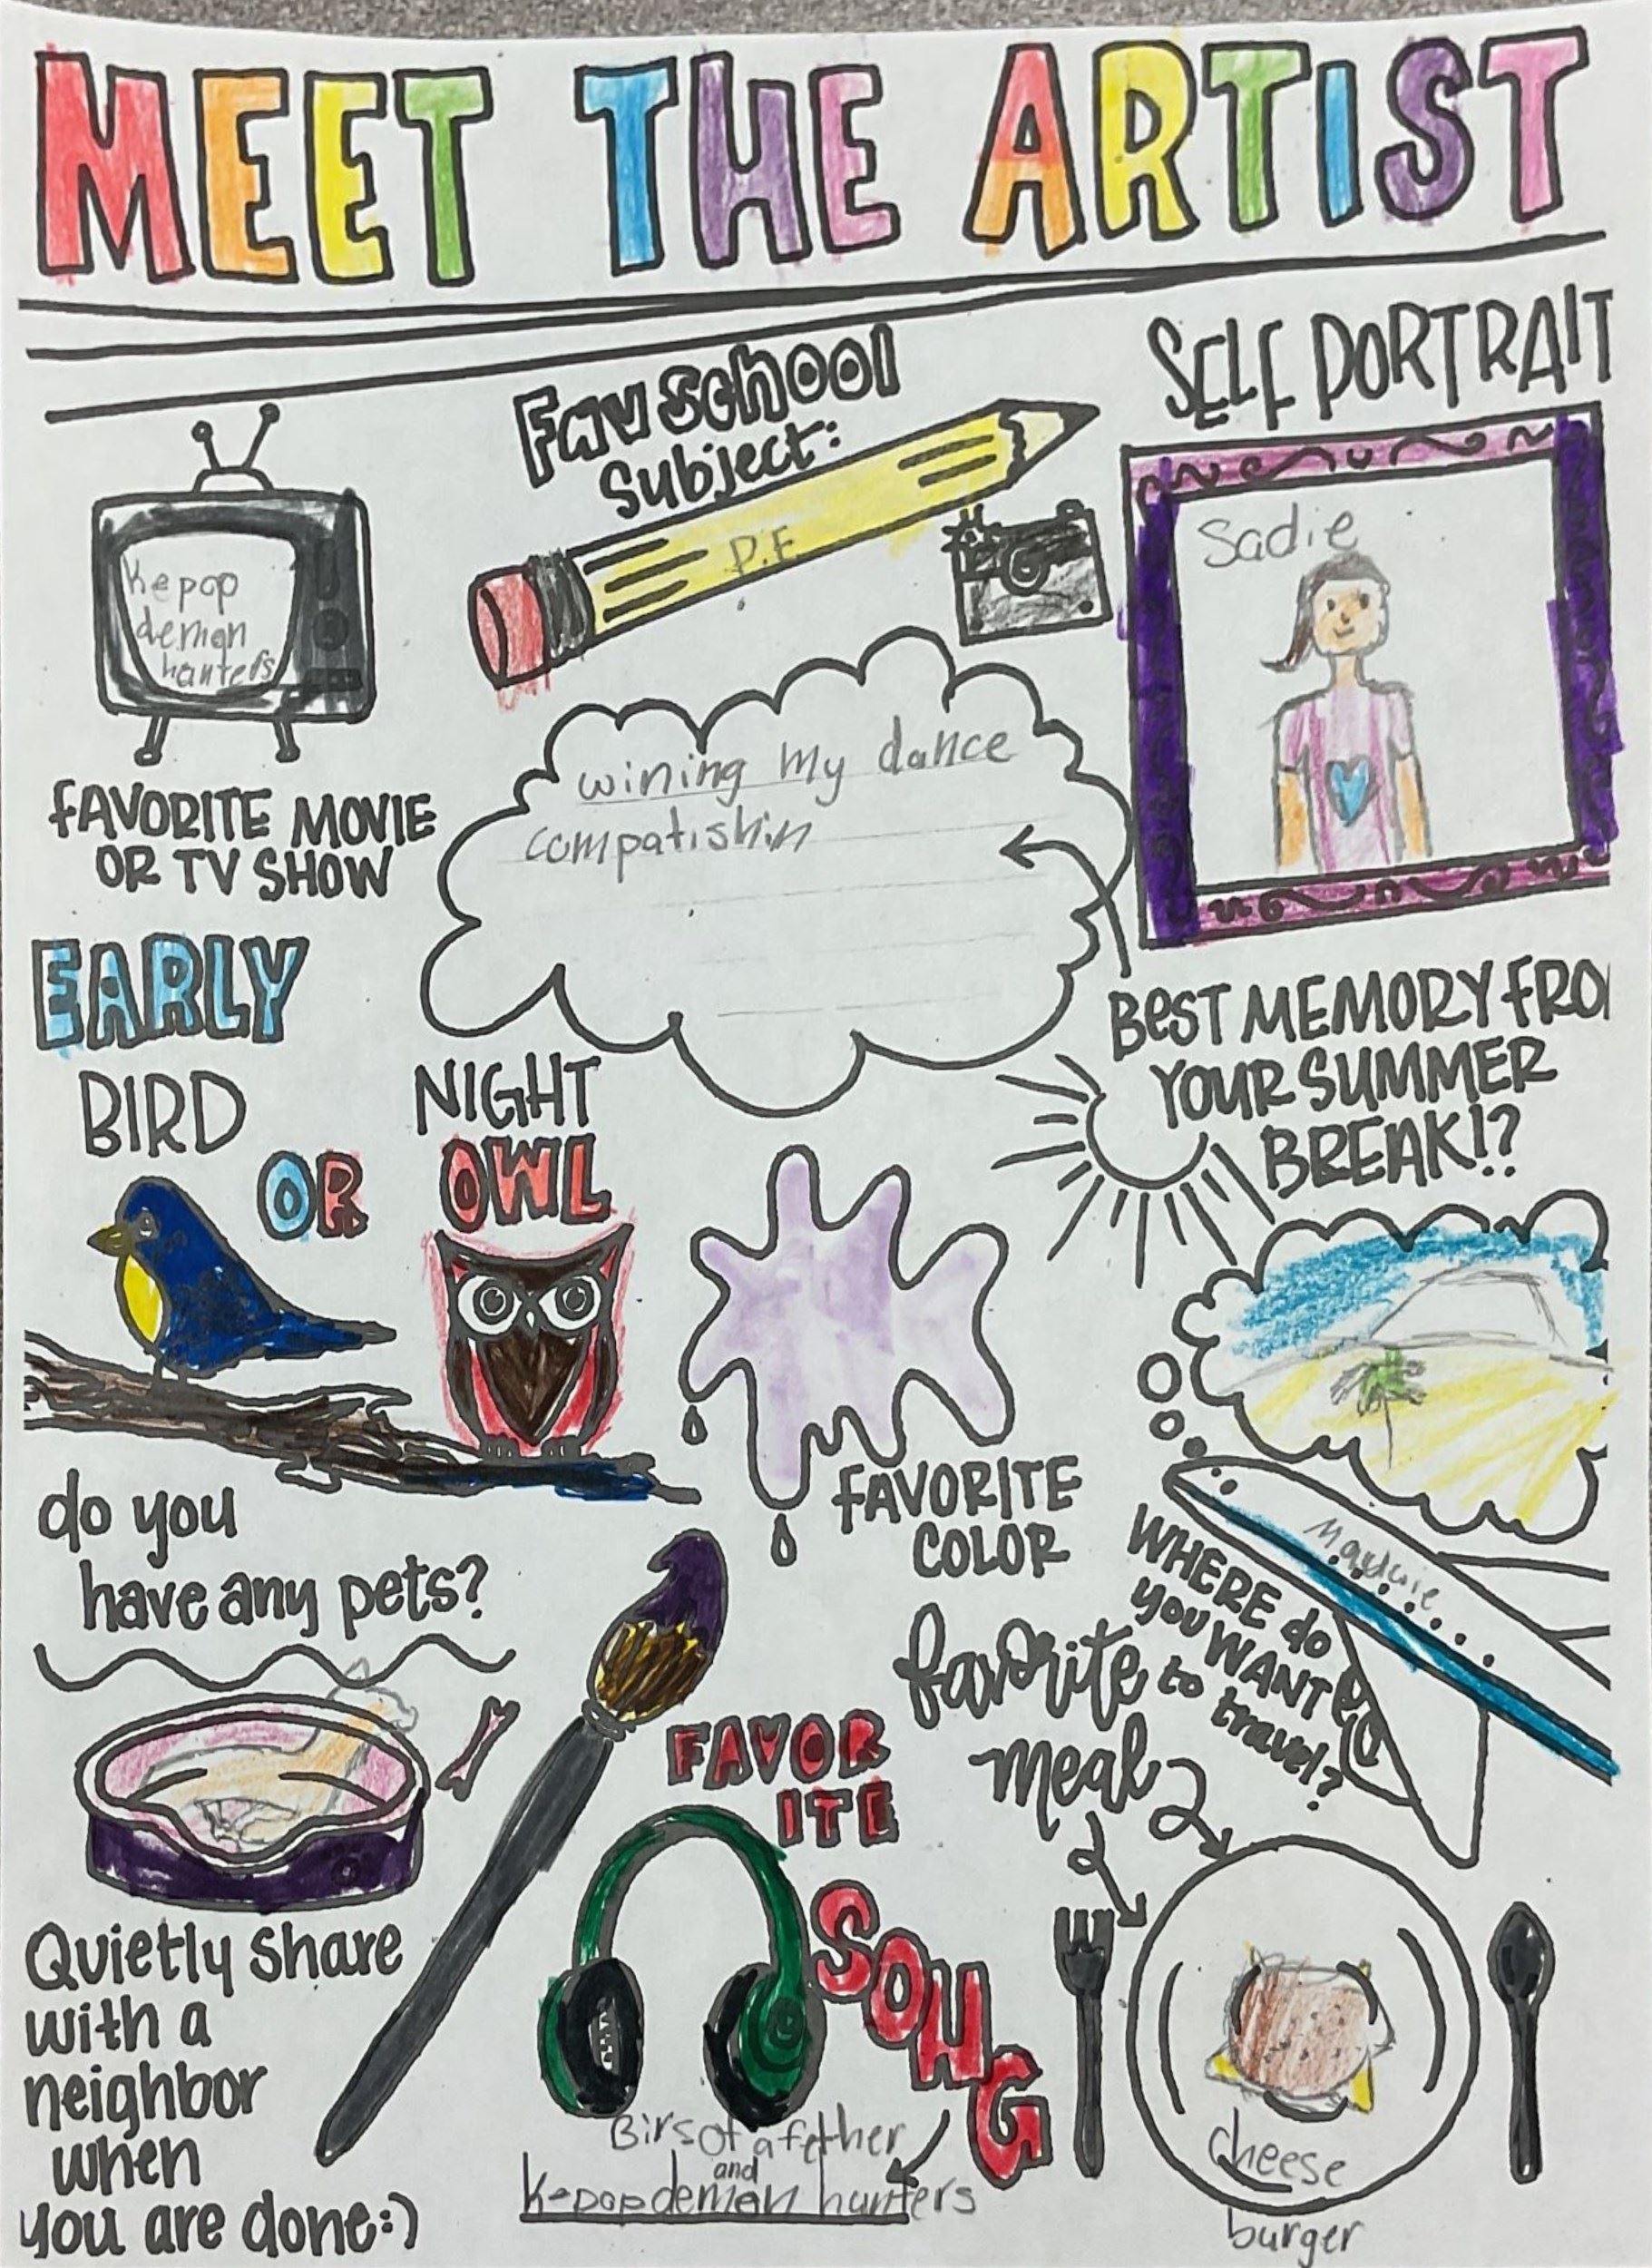 MEET THE ARTIST
Fav School
Subject:
P.E
SELF PORTRAIT
Sadie
kepop
demon
hanters
FAVORITE MOVIE
OR TV SHOW
wining my dance
compatishin
BEST MEMORY FRO
YOUR SUMMER
BREAK!?
EARLY
BIRD
OR
NIGHT
OWL
FAVORITE
COLOR
WHERE do
you WANT
to
travel?
do you
have any pets?
favorite
meal
FAVOR
ITE
SONG
Birsof a fether
and
k-pop demon hunters
cheese
burger
Quietly share
with a
neighbor
when
you are done:)